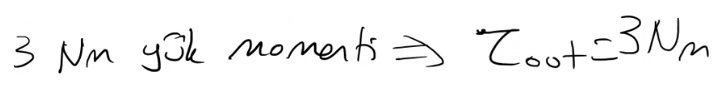 3 Nm yük momenti ⇒ τout = 3 Nm